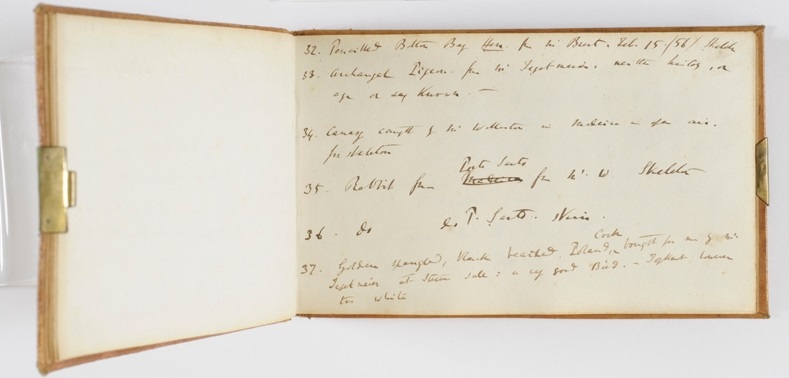 32. Pencilled Bolton Bay Hen. from Mr Brent. Feb. 15 /56/ Skeleton
33. Archangel Pigeon. from Mr Tegetmeier. neither
age or sex Known. —
34. Canary caught by Mr Wollaston in Madeira in
for skeleton
Porto Santo
35. Rabbit from Madeira from Mr. W. Skeleton
36. do do P. Santo. Skin.
Cock
37. Golden spangled, black breasted, Poland, bought for me by Mr
Tegetmeier at Stevens sale: a very good Bird. — Topknot
too white